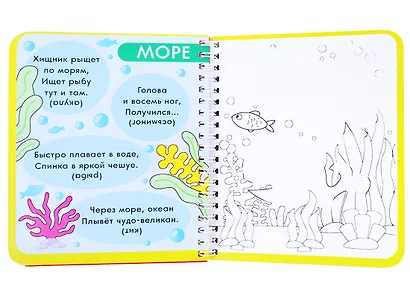 МОРЕ
Хищник рыщет
по морям,
Ищет рыбу
тут и там.
(акула)
Голова
и восемь ног,
Получился...
(осьминог)
Быстро плавает в воде,
Спинка в яркой чешуе.
(рыба)
Через море, океан
Плывёт чудо-великан.
(кит)